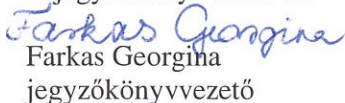 Farkas Georgina
Farkas Georgina
jegyzőkönyvvezető